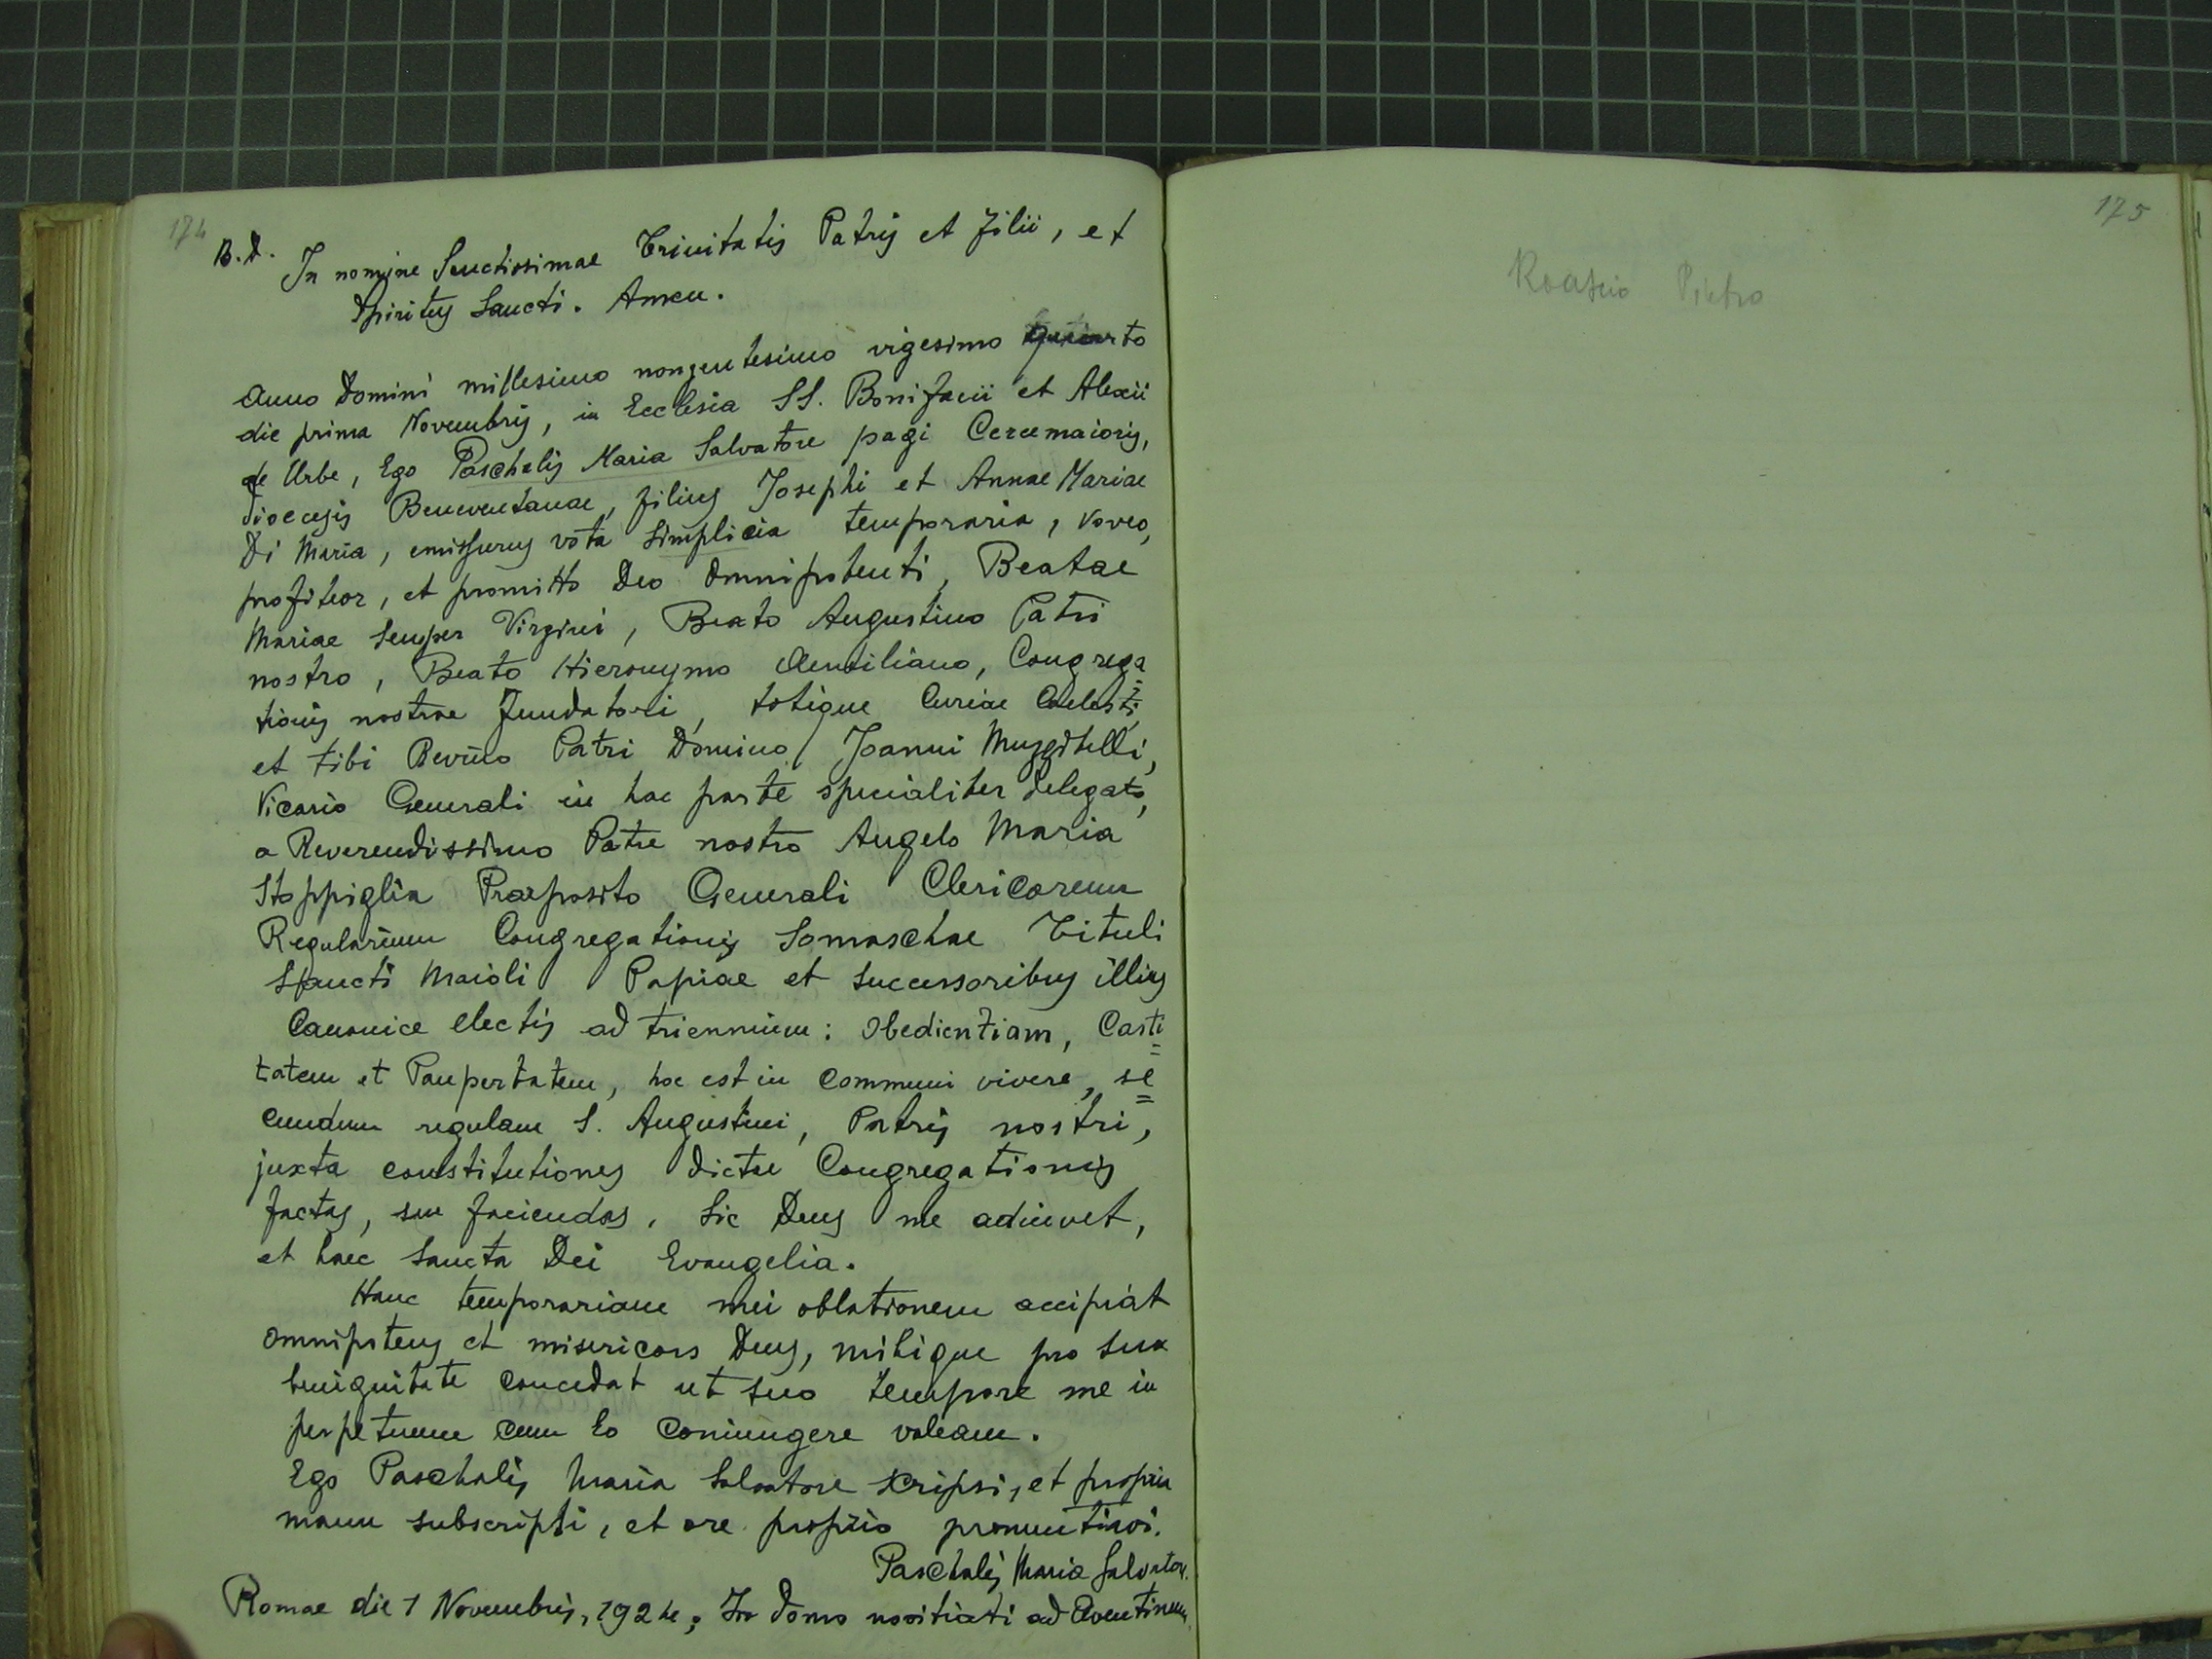 174
B. D. In nomine Sanctissimae Trinitatis Patris et Filii, et
Spiritus Sancti. Amen.
Anno Domini millesimo nongentesimo vigesimo quarto
die prima Novembris, in Ecclesia SS. Bonifacii et Alexii
de Urbe, Ego Paschalis Maria Salvatore pagi Cercemaioris,
Diocesis Beneventanae, filius Josephi et Annae Mariae
Di Maria, emissurus vota simplicia temporaria, voveo,
profiteor, et promitto Deo Omnipotenti, Beatae
Mariae semper Virgini, Beato Augustino Patri
nostro, Beato Hieronymo Aemiliano, Congrega=
tionis nostrae Fundatori, totique Curiae Coelesti,
et tibi Rev̄mo Patri Domino Joanni Muzzitelli,
Vicario Generali in hac parte specialiter delegato,
a Reverendissimo Patre nostro Angelo Maria
Stoppiglia Praeposito Generali Clericorum
Regularium Congregationis Somaschae Tituli
Sancti Maioli Papiae et successoribus illius
Canonice electis ad triennium: Obedientiam, Casti=
tatem et Paupertatem, hoc est in communi vivere, se=
cundum regulam S. Augustini, Patris nostri,
juxta constitutiones dictae Congregationis
factas, seu faciendas. Sic Deus me adiuvet,
et haec Sancta Dei Evangelia.
Hanc temporariam mei oblationem accipiat
Omnipotens et misericors Deus, mihique pro sua
benignitate concedat ut suo tempore me in
perpetuum cum Eo coniungere valeam.
Ego Paschalis Maria Salvatore scripsi, et propria
manu subscripsi, et ore proprio pronuntiavi.
Paschalis Maria Salvatore.
Romae die 1 Novembris, 1924; In domo novitiati ad Aventinum.
175
Pietro